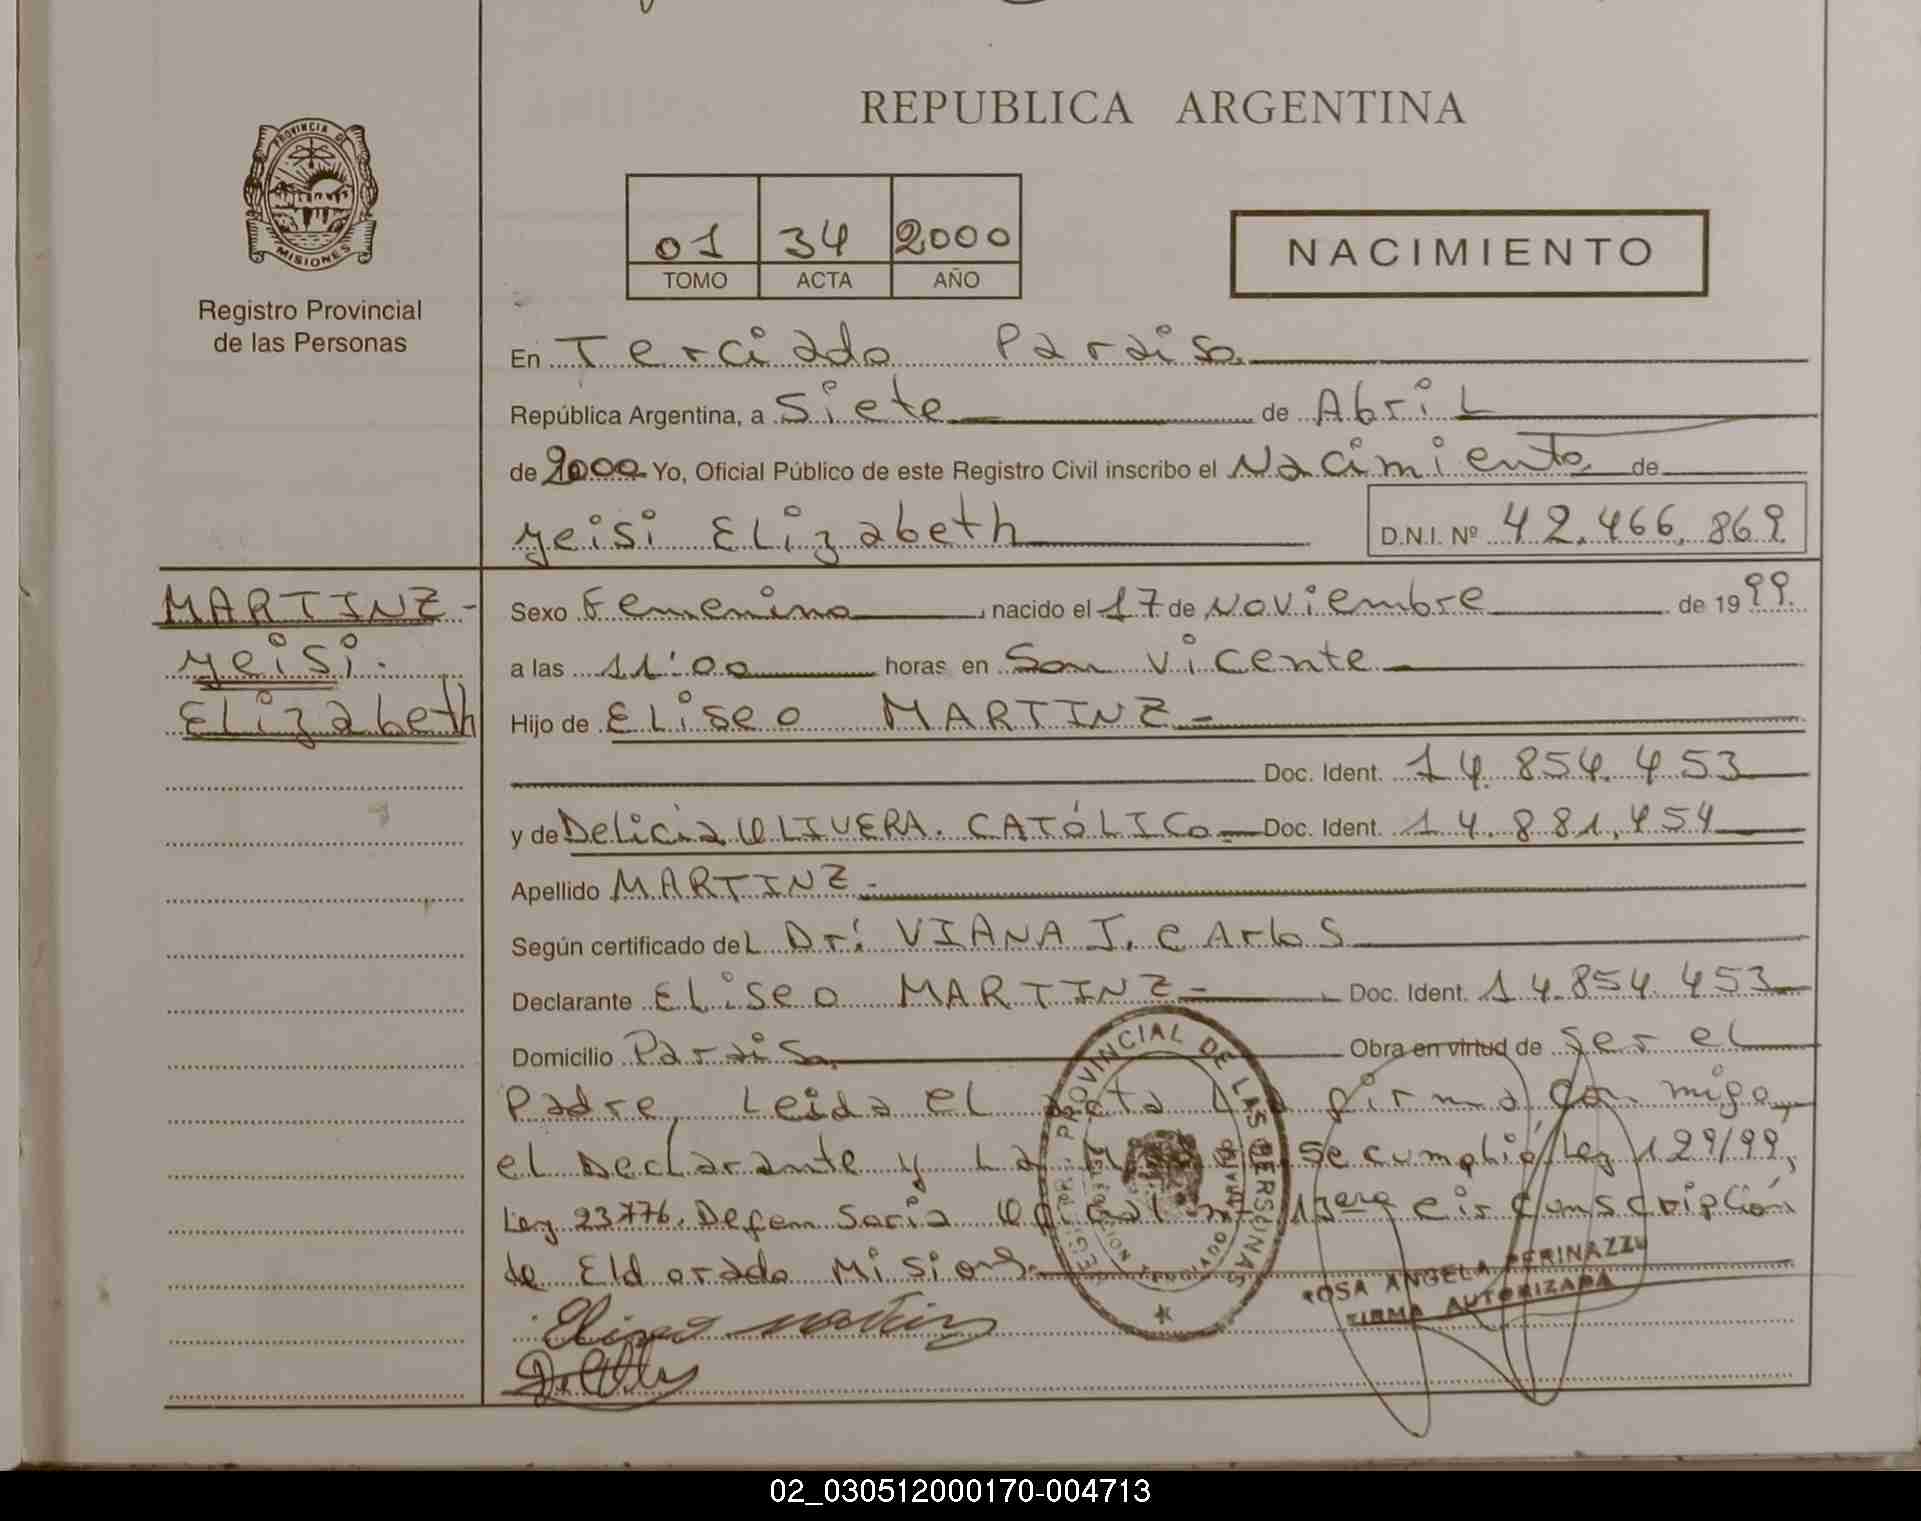 REPUBLICA ARGENTINA
PROVINCIA D
MISIONES
Registro Provincial
de las Personas
01 34 2000
TOMO ACTA AÑO
NACIMIENTO
En Terciado Paraiso
República Argentina, a Siete de Abril
de 2000 Yo, Oficial Público de este Registro Civil inscribo el Nacimiento de
Yeisi Elizabeth D.N.I. Nº 42.466.869
MARTINZ -
Yeisi.
Elizabeth
Sexo Femenino, nacido el 17 de Noviembre de 1999.
a las 11:00 horas en San Vicente
Hijo de Eliseo MARTINZ -
Doc. Ident. 14.854.453
y de Delicia OLIVERA. CATÓLICO Doc. Ident. 14.881.454
Apellido MARTINZ -
Según certificado del Dr: VIANA J. CArlos
Declarante Eliseo MARTINZ - Doc. Ident. 14.854.453
Domicilio Paraiso, Obra en virtud de Ser el
Padre, Leida el acta La firma con migo,
el Declarante y La Se cumplió Ley 129/99,
Ley 23776. Defensoria Oficial 13era circunscripción
de Eldorado Misiones.
PROVINCIAL DE LAS PERSONAS
ROSA ANGELA PERINAZZO
FIRMA AUTORIZADA
02_030512000170-004713